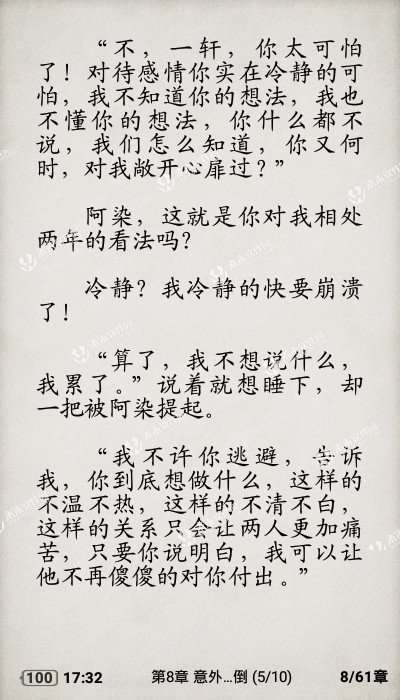 “不，一轩，你太可怕
了！对待感情你实在冷静的可
怕，我不知道你的想法，我也
不懂你的想法，你什么都不
说，我们怎么知道，你又何
时，对我敞开心扉过？”
阿染，这就是你对我相处
两年的看法吗？
冷静？我冷静的快要崩溃
了！
“算了，我不想说什么，
我累了。”说着就想睡下，却
一把被阿染提起。
“我不许你逃避，告诉
我，你到底想做什么，这样的
不温不热，这样的不清不白，
这样的关系只会让两人更加痛
苦，只要你说明白，我可以让
他不再傻傻的对你付出。”
100 17:32 第8章 意外...倒 (5/10) 8/61章